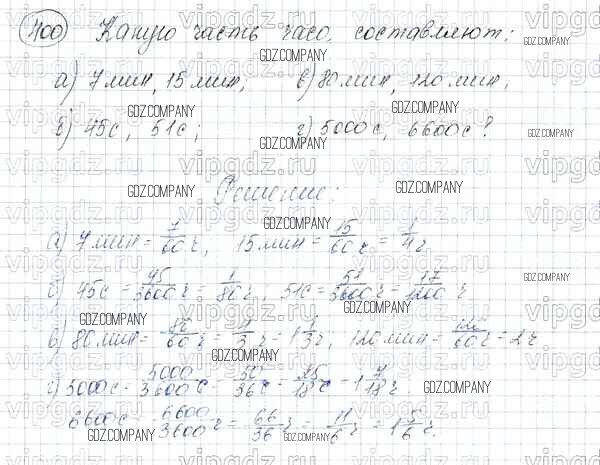 400 Какую часть часа составляют:
а) 7 мин, 15 мин, в) 80 мин, 120 мин,
б) 45с, 51с; г) 5000с, 6600с?
Решение:
а) 7 мин = 7/60 ч, 15 мин = 15/60 ч = 1/4 ч
б) 45с = 45/3600 ч = 1/80 ч; 51с = 51/3600 ч = 17/1200 ч
в) 80 мин = 80/60 ч = 4/3 ч = 1 1/3 ч, 120 мин = 120/60 ч = 2 ч
г) 5000с = 5000/3600 ч = 50/36 ч = 25/18 ч = 1 7/18 ч.
6600с = 6600/3600 ч = 66/36 ч = 11/6 ч = 1 5/6 ч.
vipgdz.ru
GDZ.COMPANY